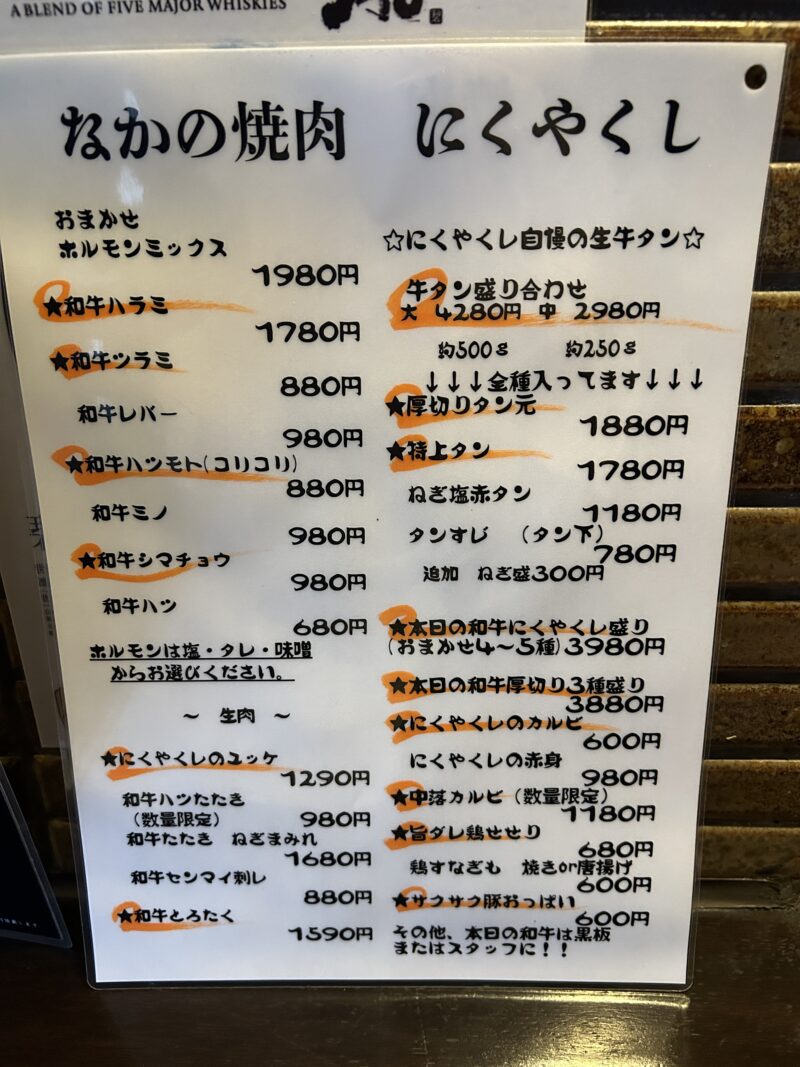 A BLEND OF FIVE MAJOR WHISKIES
なかの焼肉 にくやくし
おまかせ
ホルモンミックス
1980円
★和牛ハラミ
1780円
★和牛ツラミ
880円
和牛レバー
980円
★和牛ハツモト(コリコリ)
880円
和牛ミノ
980円
★和牛シマチョウ
980円
和牛ハツ
680円
ホルモンは塩・タレ・味噌
からお選びください。
～ 生肉 ～
★にくやくしのユッケ
1290円
和牛ハツたたき
(数量限定) 980円
和牛たたき ねぎまみれ
1680円
和牛センマイ刺し
880円
★和牛とろたく
1590円
☆にくやくし自慢の生牛タン☆
牛タン盛り合わせ
大 4280円 中 2980円
約500g 約250g
↓↓↓全種入ってます↓↓↓
★厚切りタン元
1880円
★特上タン
1780円
ねぎ塩赤タン
1180円
タンすじ (タン下)
780円
追加 ねぎ盛300円
★本日の和牛にくやくし盛り
(おまかせ4～5種)3980円
★本日の和牛厚切り3種盛り
3880円
★にくやくしのカルビ
600円
にくやくしの赤身
980円
★中落カルビ(数量限定)
1180円
★旨ダレ鶏せせり
680円
鶏すなぎも 焼きor唐揚げ
600円
★サクサク豚おっぱい
600円
その他、本日の和牛は黒板
またはスタッフに！！